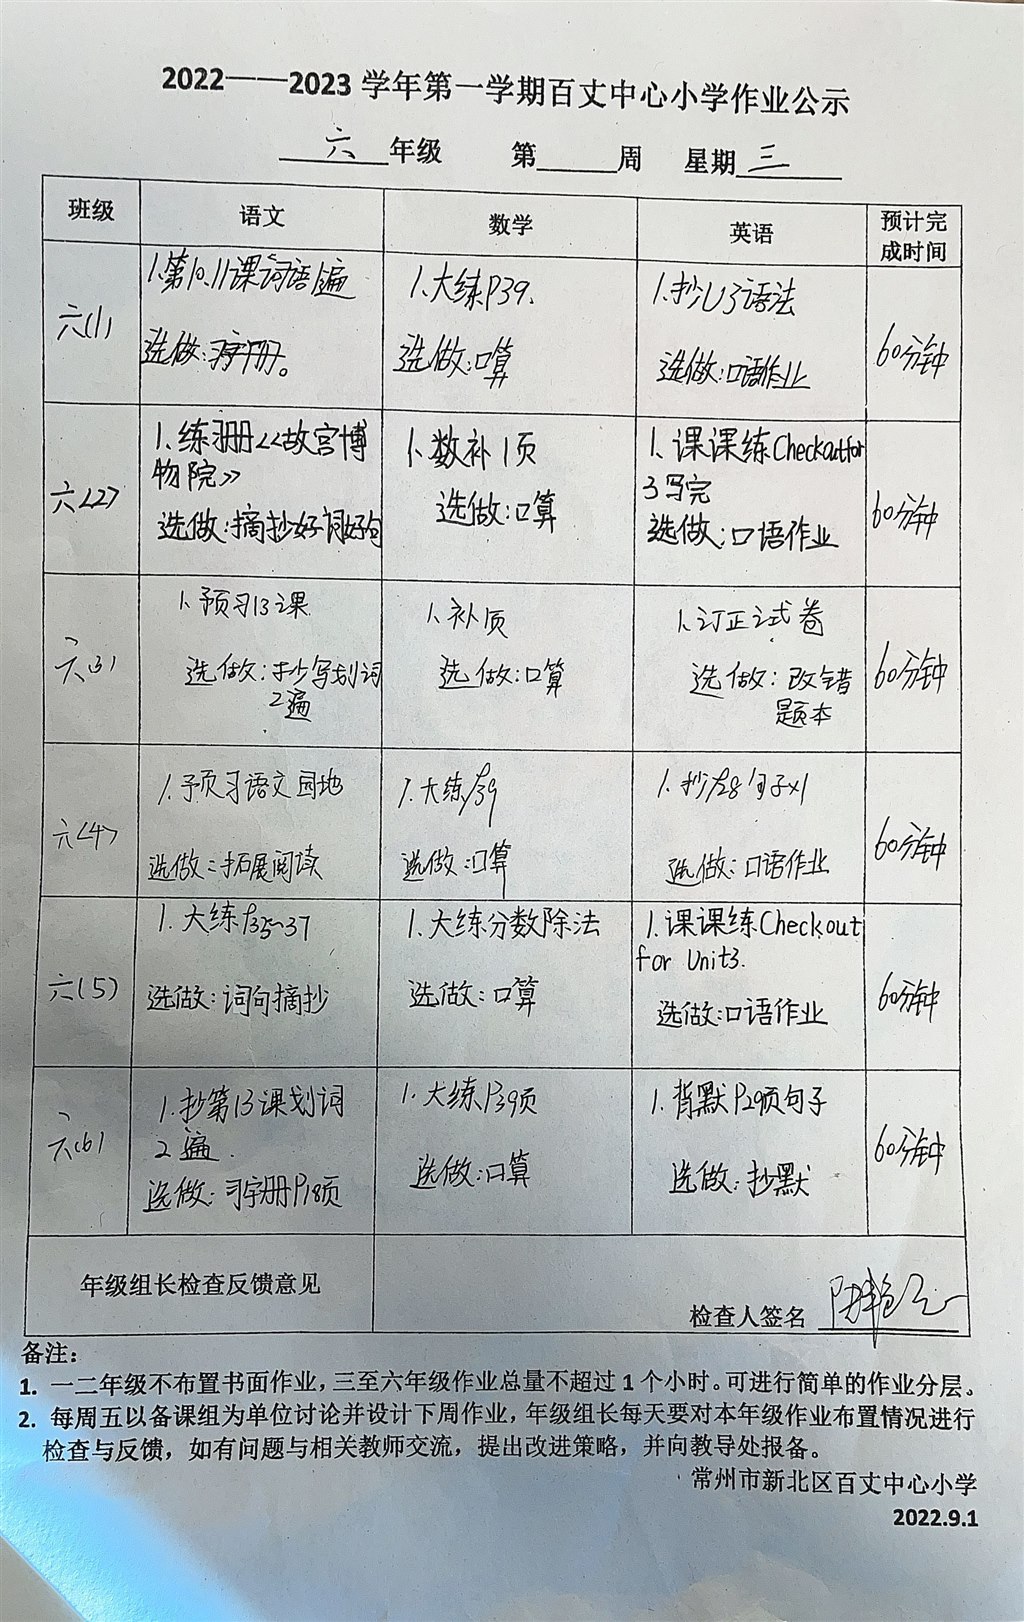 2022——2023学年第一学期百丈中心小学作业公示
六 年级 第 周 星期 三
班级 语文 数学 英语 预计完成时间
六(1)
1.第10.11课词语1遍
选做:习字册。
1.大练P39.
选做:口算
1.抄U3语法
选做:口语作业
60分钟
六<2>
1.练习册<<故宫博
物院>>
选做:摘抄好词好句
1.数补1页
选做:口算
1.课课练Checkout for
3写完
选做:口语作业
60分钟
六(3)
1.预习13课
选做:抄写划词
2遍
1.补1页
选做:口算
1.订正试卷
选做:改错
题本
60分钟
六<4>
1.预习语文园地
选做:拓展阅读
1.大练P39
选做:口算
1.抄P28句子x1
选做:口语作业
60分钟
六(5)
1.大练P35~37
选做:词句摘抄
1.大练分数除法
选做:口算
1.课课练Checkout
for Unit3.
选做:口语作业
60分钟
六(6)
1.抄第13课划词
2遍.
选做:习字册P18页
1.大练P39页
选做:口算
1.背默P29页句子
选做:抄默
60分钟
年级组长检查反馈意见
检查人签名
备注:
1. 一二年级不布置书面作业,三至六年级作业总量不超过1个小时。可进行简单的作业分层。
2. 每周五以备课组为单位讨论并设计下周作业,年级组长每天要对本年级作业布置情况进行
检查与反馈,如有问题与相关教师交流,提出改进策略,并向教导处报备。
常州市新北区百丈中心小学
2022.9.1